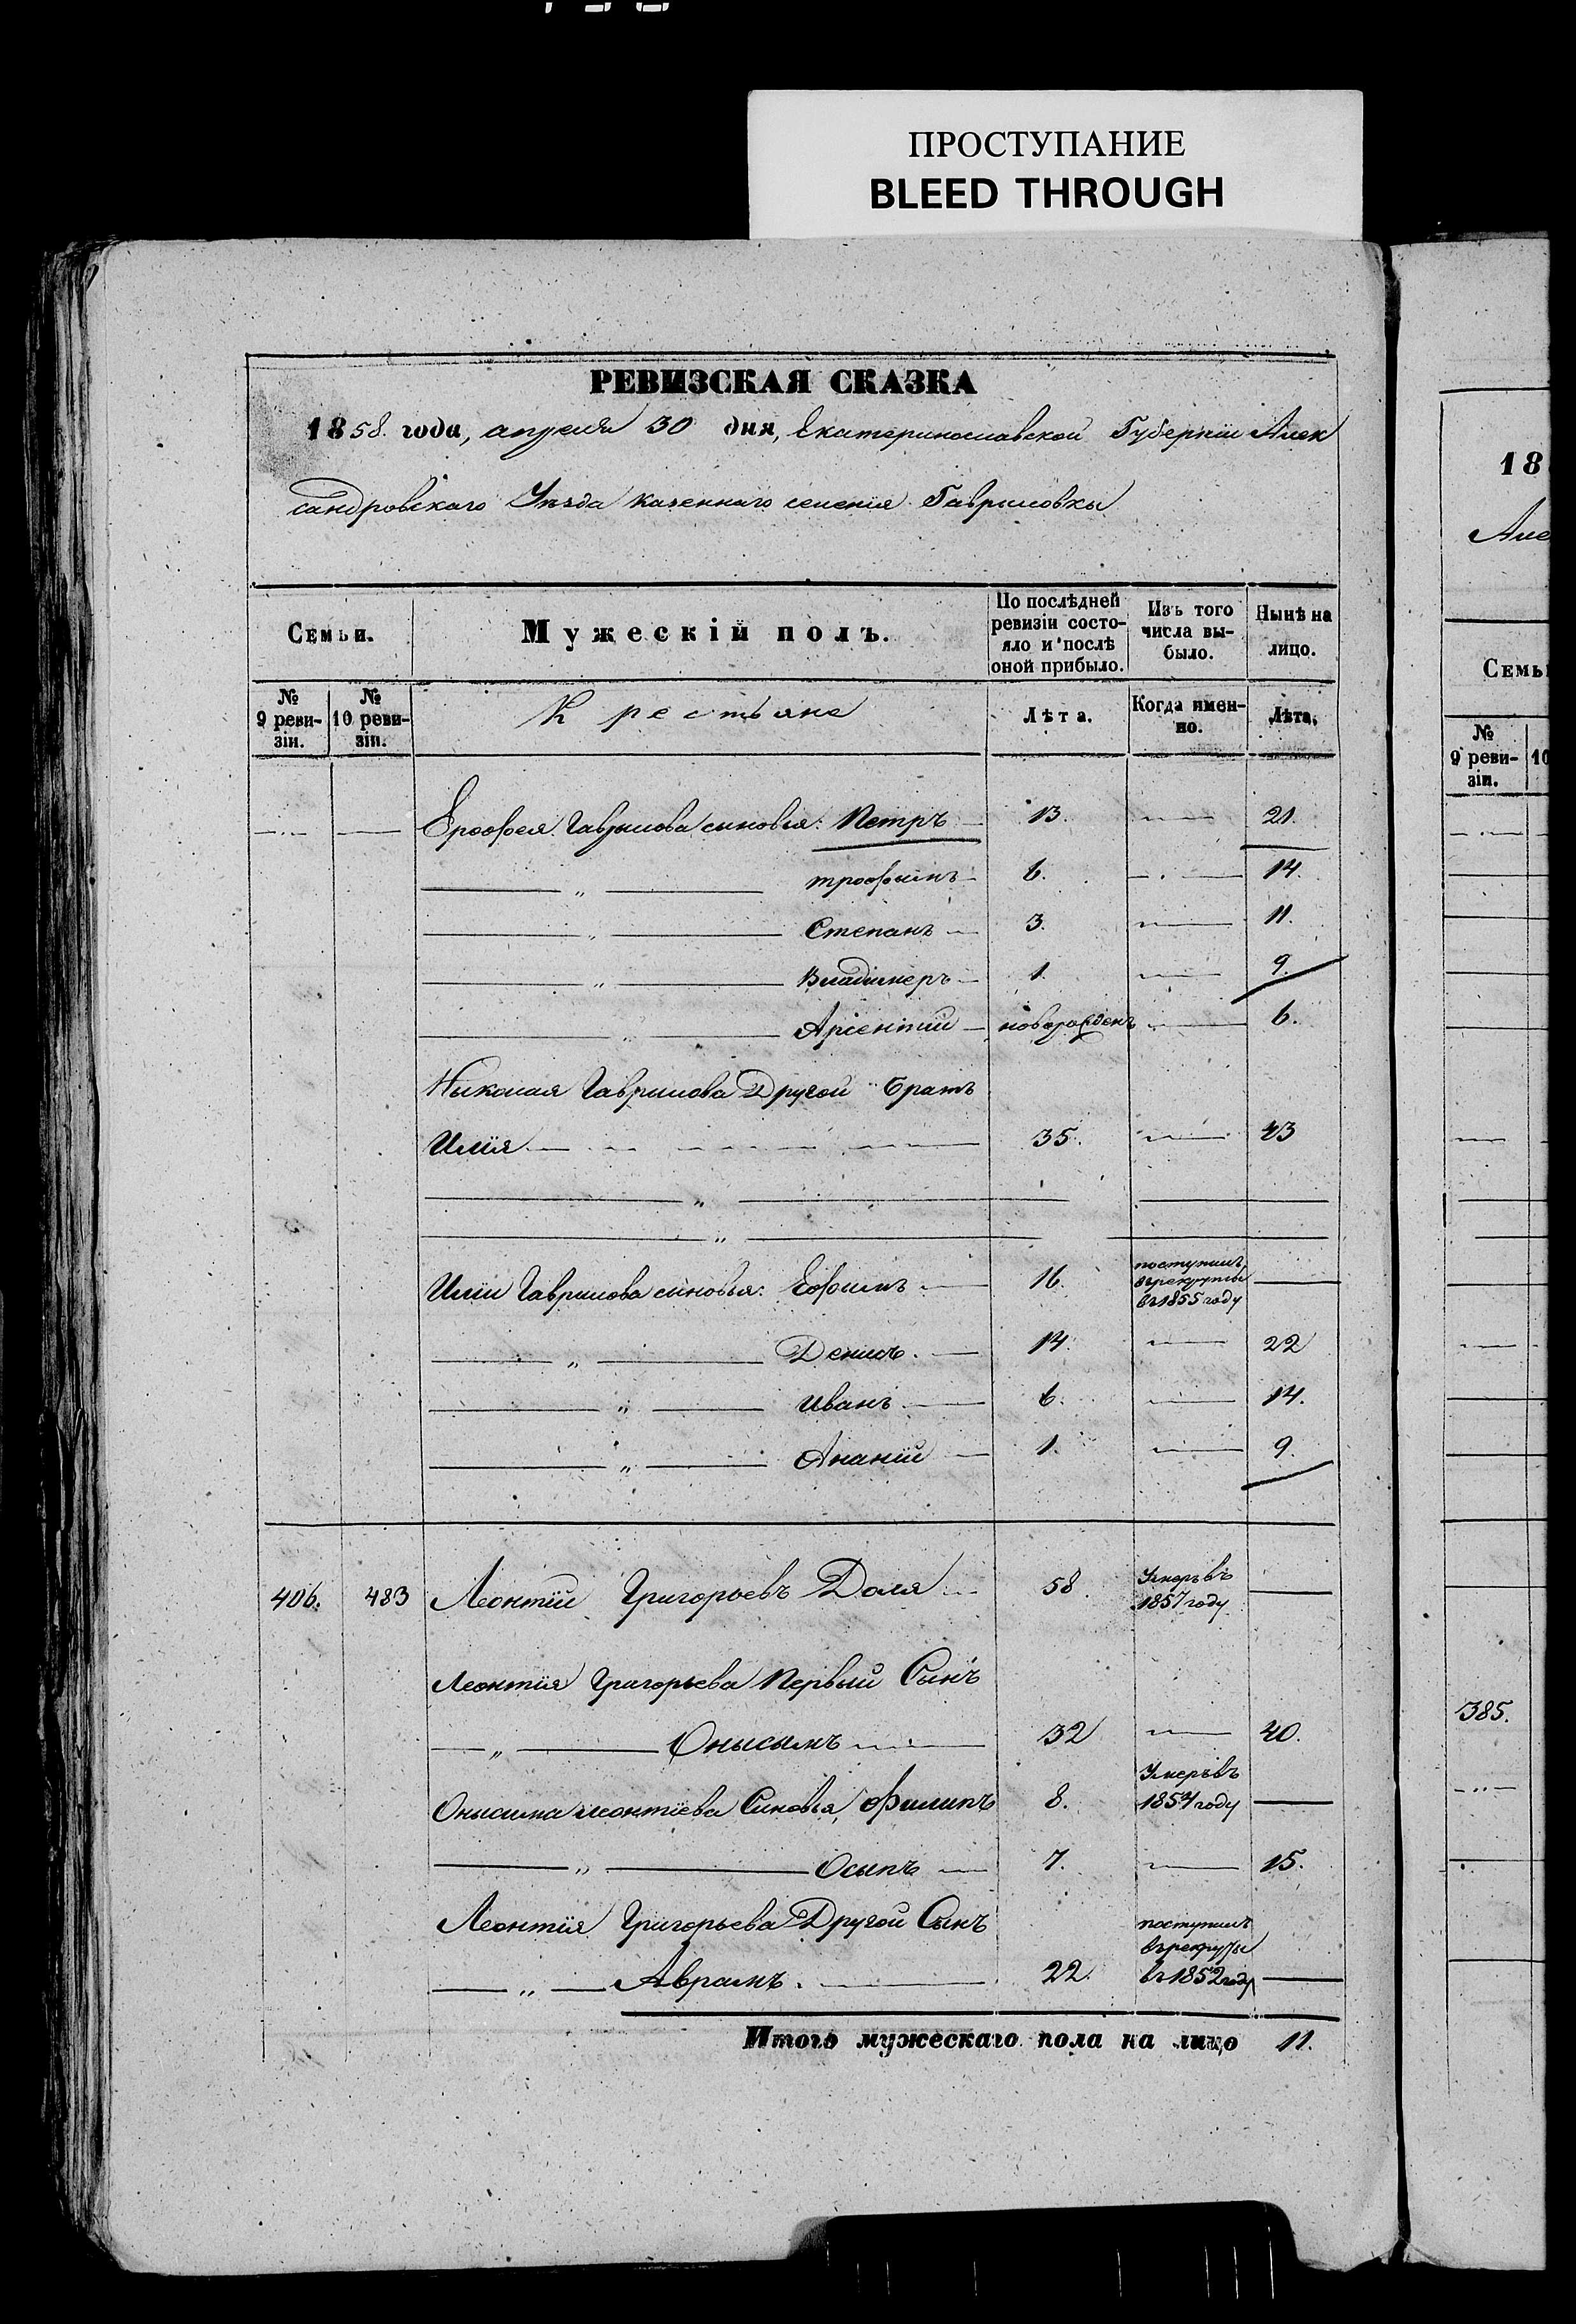 ПРОСТУПАНИЕ
BLEED THROUGH
РЕВИЗСКАЯ СКАЗКА
1858. года, апреля 30 дня, Екатеринославской Губернїи Алек
сандровскаго Уѣзда казеннаго селенія Гаврыловкы
Семьи.
Мужескій полъ.
По послѣдней ревизіи состо-яло и послѣ оной прибыло.
Изъ того числа вы-было.
Нынѣ на лицо.
№ 9 реви-зіи.
№ 10 реви-зіи.
Крестьяне
Лѣта.
Когда имен-но.
Лѣта.
Ерофея Гаврылова сыновья: Петръ 13. 21.
трофымъ 6. 14.
Степанъ 3. 11.
Владимеръ 1. 9.
Арсентий новорожденъ 6.
Ныколая Гаврылова Другой Братъ
Илїя 35. 43
Илїи Гаврылова сыновья: Ефымъ 16. поступилъ
въ рекруты
въ 1855 году
Денисъ. 14. 22
Иванъ 6. 14.
Ананїй 1. 9.
406. 483 Леонтїй Григорьевъ Доля 58. Умеръ въ
1857 году
Леонтїя Григорьева Первый Сынъ
Онысымъ 32 40.
Онысыма Леонтїева Сыновья, Филипъ 8. Умеръ въ
1854 году
Осыпъ 7. 15.
Леонтїя Григорьева Другой Сынъ
Аврамъ. 22. поступилъ
въ рекруты
въ 1852 году
Итого мужескаго пола на лицо 11.
18
Але
Семьи
№ 9 реви-зіи.
10
385.